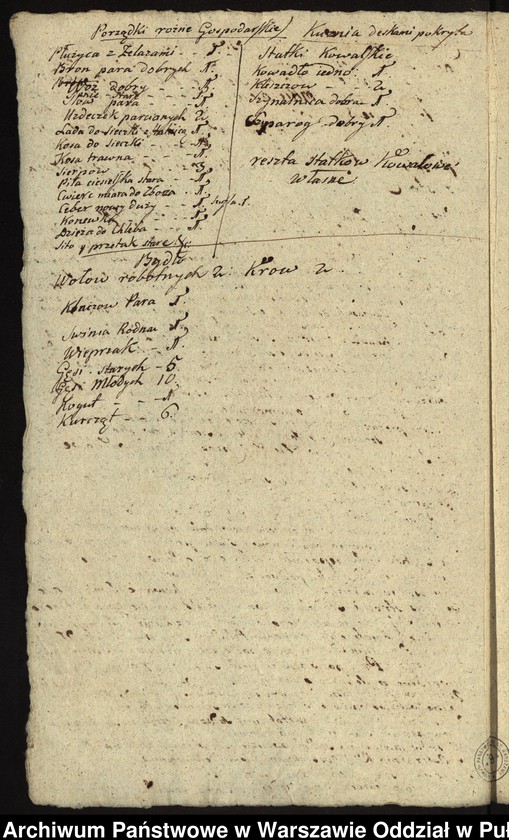 Porządki rózne Gospodarskie
Płużyca z Żelazami - - 1.
Bron para dobrych 1.
Wóz dobry - - -
para - - 1
Uzdeczek parcianych 2
Lada do Sieczki z 1
Kosa do Sieczki - 1
Kosa trawna - - 1
Sierpów - - 3
Piła ciesielska stara - 1.
Cwierc miara do Zboza - 1.
Ceber nowy duży - - 1
Konewka - - 1
Dzieża do Chleba - - 1
Sito y przetak stare
Kuznia deskami pokryta
Statki Kowalskie
Kowadło iedno - 1
Kleszczow - - 2
dobra 1
dobry 1
reszta statków Kowalowe
własne
Bydło
Wołow robotnych 2. Krow 2.
Para 1.
Swinia Rodna 1.
Wieprzak - - 1.
Gęsi starych - 5
Gęsi młodych 10.
Kogut - - 1
Kurcząt - - 6.
Archiwum Państwowe w Warszawie Oddział w Puł